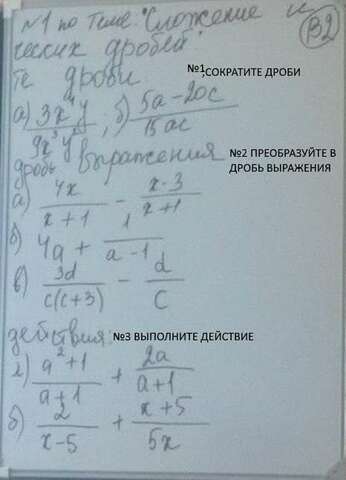 №1 по теме: "Сложение и
ческих дробей
те дроби №1 СОКРАТИТЕ ДРОБИ
В2
а) 3x⁴y / 9x³y ; б) 5a-20c / 15ac
дробь выражения №2 ПРЕОБРАЗУЙТЕ В ДРОБЬ ВЫРАЖЕНИЯ
а) 4x / x+1 - x-3 / x+1
б) 4a + 1 / a-1
в) 3d / c(c+3) - d / c
действия: №3 ВЫПОЛНИТЕ ДЕЙСТВИЕ
а) a²+1 / a+1 + 2a / a+1
б) 2 / x-5 + x+5 / 5x